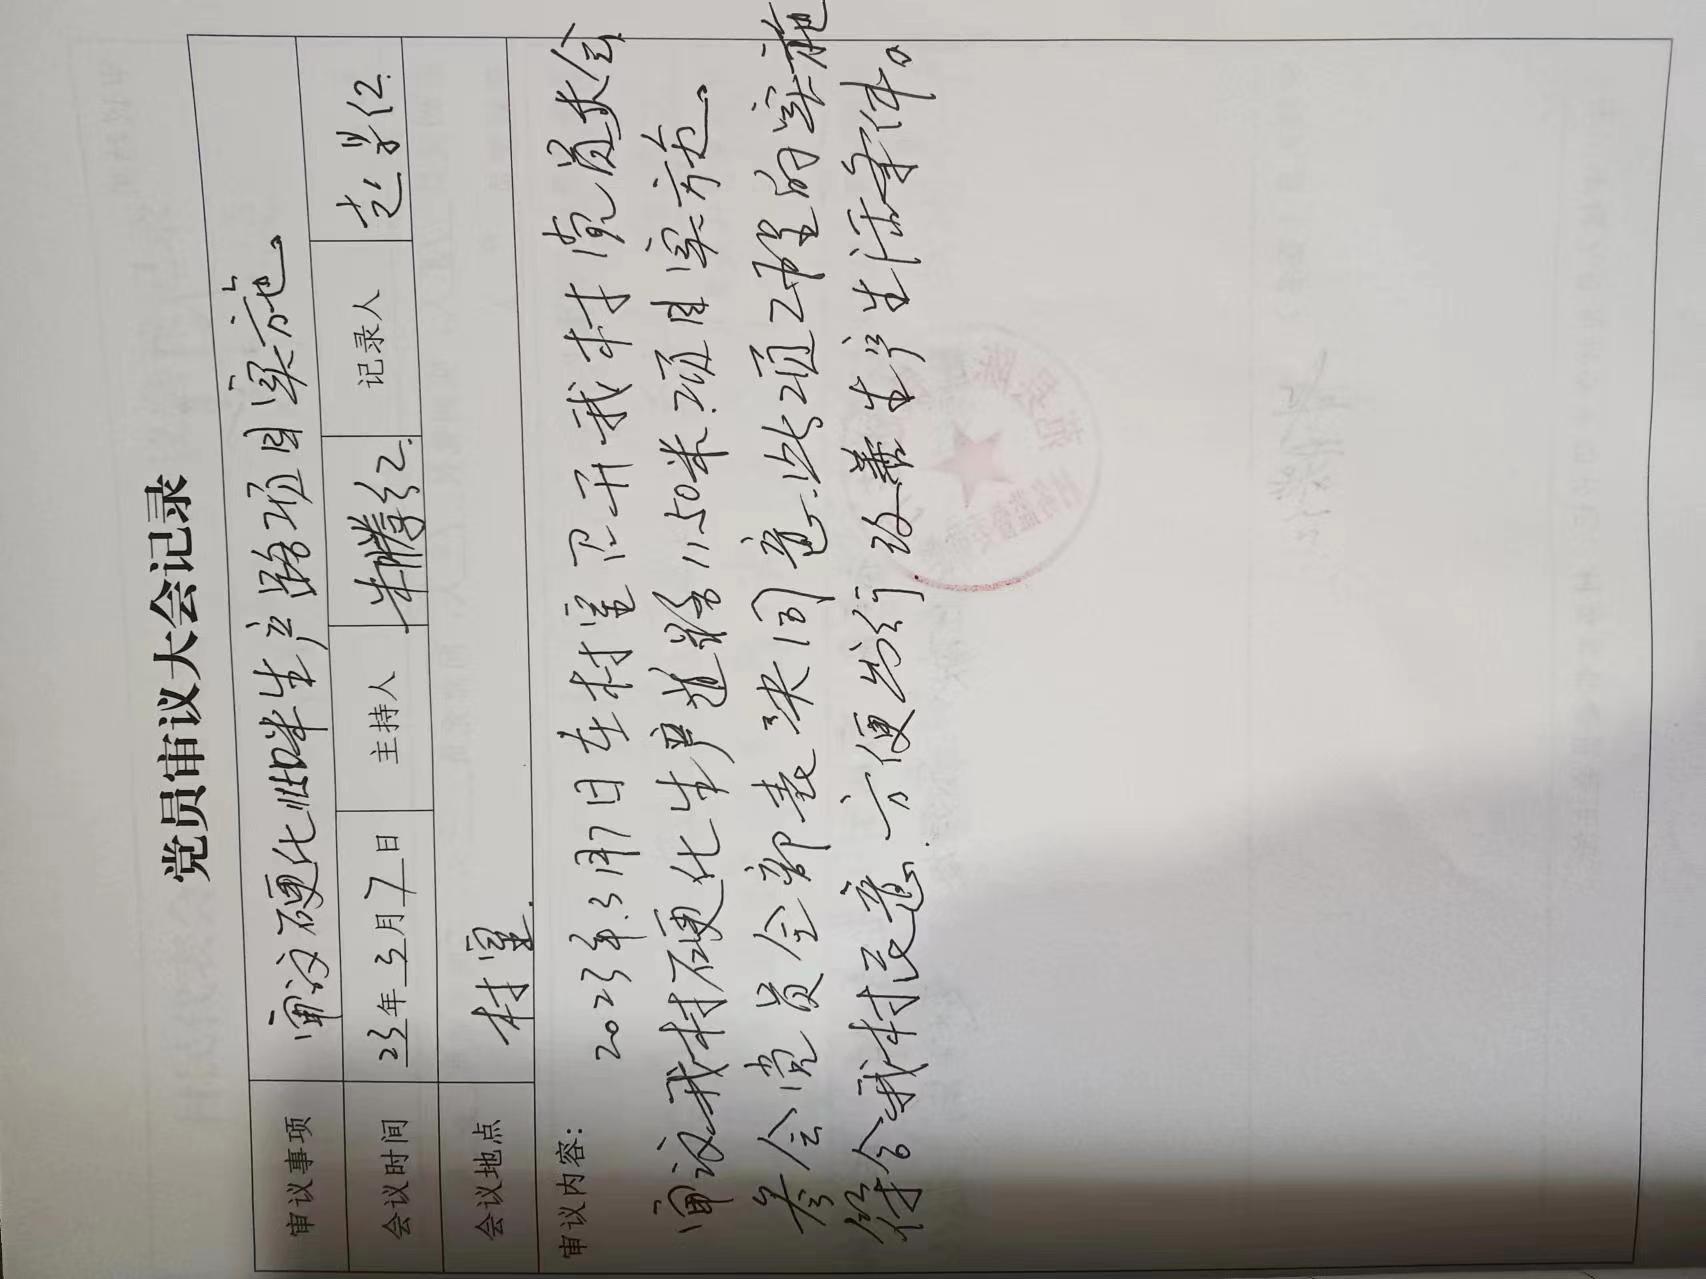 党员审议大会记录
审议事项 审议硬化畔生产路项目实施。
会议时间 23年3月7日 主持人 朱腾红 记录人
会议地点 村室
审议内容：
2023年3月7日在村室召开我村党员大会
审议我村硬化生产道路1150米项目实施。
参会党员全部表决同意此项工程的实施
符合我村民意方便出行改善生产生活条件。